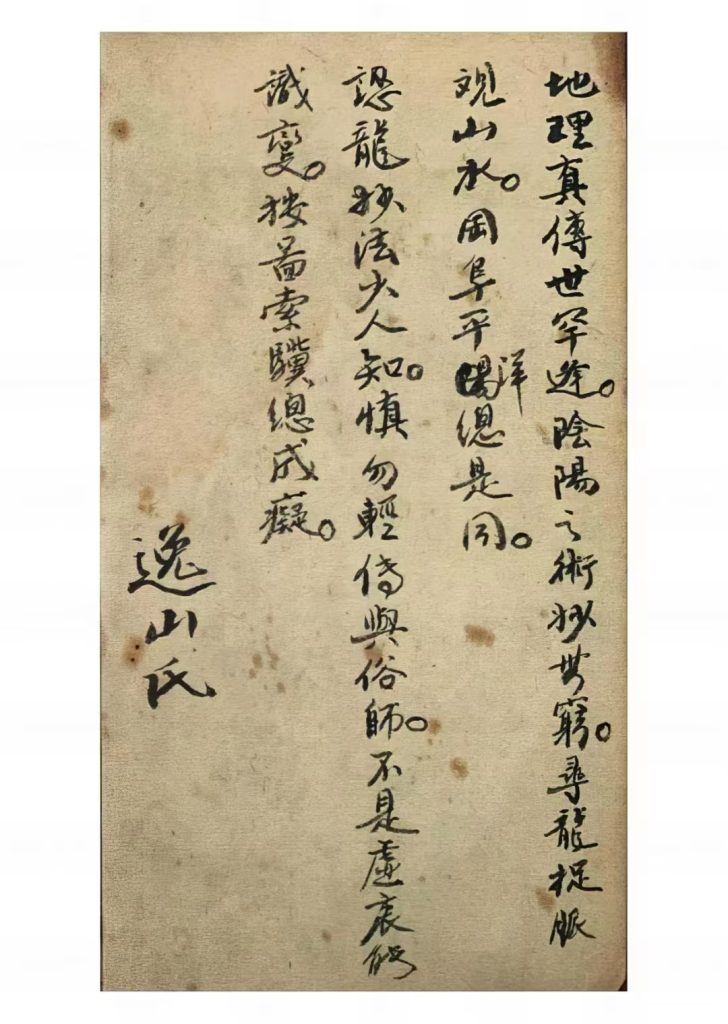 地理真傳世罕逢。陰陽之術妙無窮。尋龍捉脈
观山水。岡阜平洋總是同。
認龍妙法少人知。慎勿輕傳與俗師。不是虛衷能
識變。按圖索驥總成癡。
逸山氏